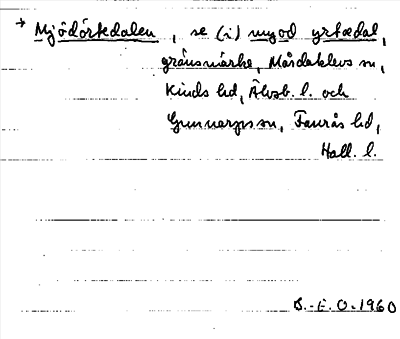 → Mjödörtedalen, se (i) myod yrtædal,
gränsmärke, Mårdaklevs sn,
Kinds hd, Älvsb. l. och
Gunnarps sn, Faurås hd,
Hall. l.
B.-E. O. 1960